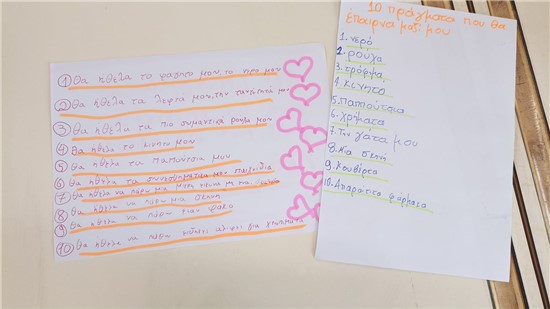 ① Θα ήθελα το φαγητό μου, το νερό μου
② Θα ήθελα τα λεφτά μου, την ταυτότητά μου
③ Θα ήθελα τα πιο σημαντικά ρούχα μου
④ Θα ήθελα το κινητό μου
⑤ Θα ήθελα τα παπούτσια μου
⑥ Θα ήθελα τα συναισθηματικά μου παιχνίδια
⑦ Θα ήθελα να πάρω μια
⑧ Θα ήθελα να πάρω μια σκηνή
⑨ Θα ήθελα να πάρω έναν φακό
⑩ Θα ήθελα να πάρω για χτυπήματα
10 πράγματα που θα
έπαιρνα μαζί μου
1. νερό
2. ρούχα
3. τρόφιμα
4. κινητό
5. παπούτσια
6. χρήματα
7. Την γάτα μου
8. Μια σκηνή
9. Κουβέρτα
10. Απαραίτητα φάρμακα